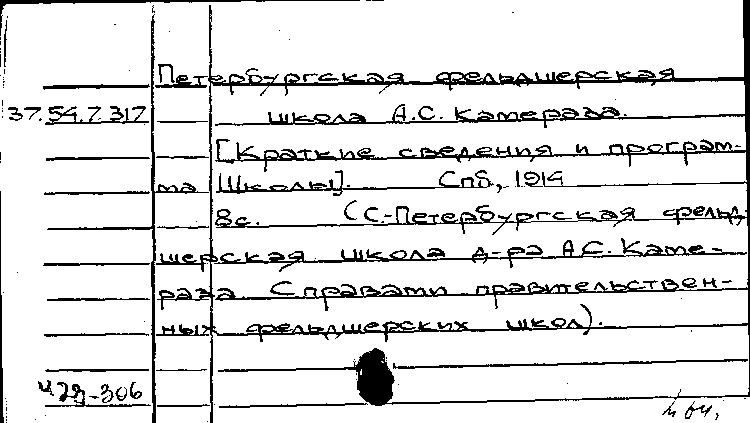 Петербургская фельдшерская
37.54.7.317 школа А.С. Камераза.
[Краткие сведения и програм-
ма Школы]. Спб., 1914
8с. (С-Петербургская фельд-
шерская школа д-ра А.С. Каме-
раза С правами правительствен-
ных фельдшерских школ).